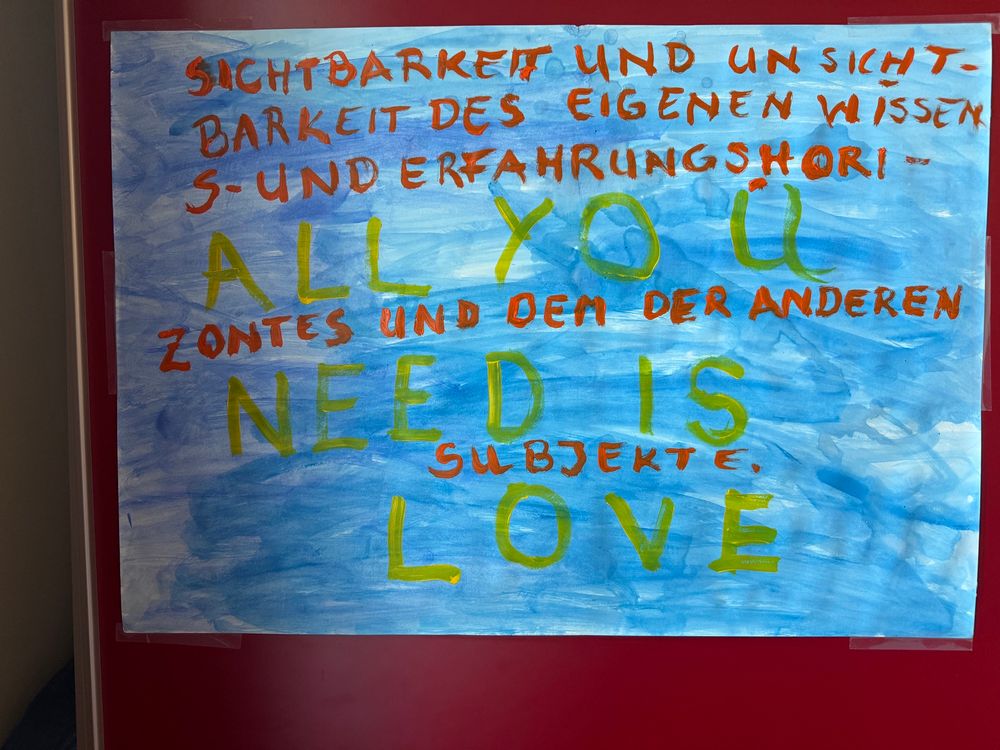 SICHTBARKEIT UND UNSICHT-
BARKEIT DES EIGENEN WISSEN
S-UND ERFAHRUNGSHORI-
ALL YOU
ZONTES UND DEM DER ANDEREN
NEED IS
SUBJEKTE.
LOVE